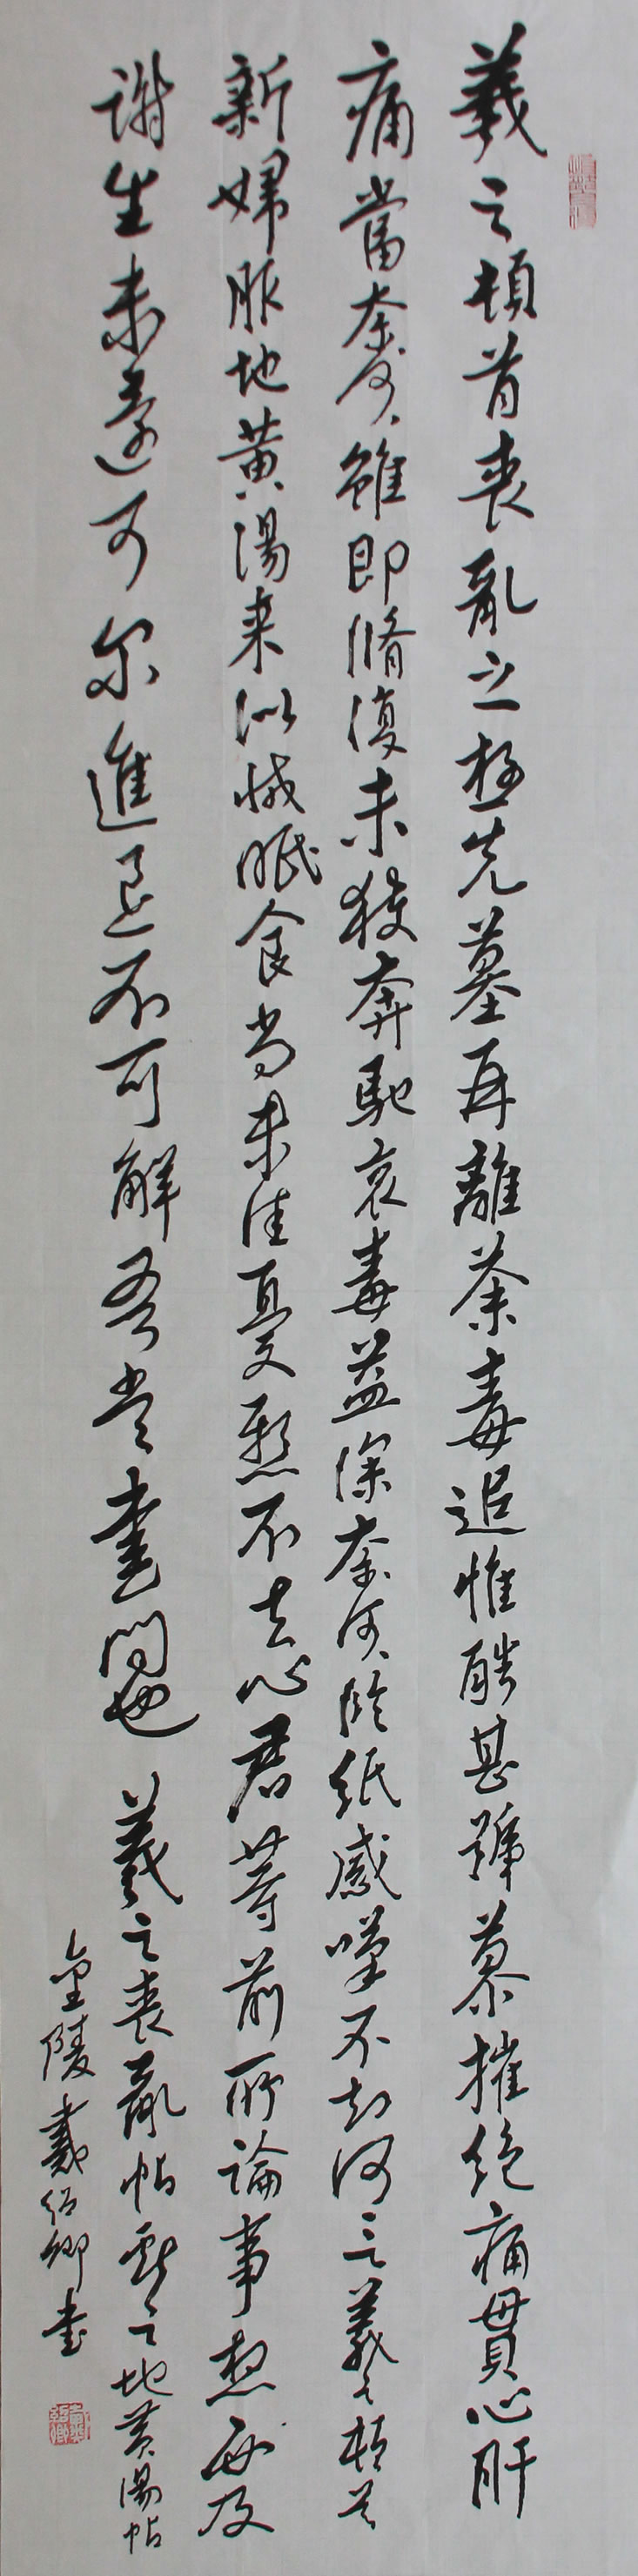 羲之頓首喪亂之極先墓再離荼毒追惟酷甚號慕摧絕痛貫心肝
痛當奈何奈何雖即脩復未獲奔馳哀毒益深奈何奈何臨紙感哽不知何言羲之頓首
新婦服地黃湯来似減眠食尚未佳憂懸不去心君等前所論事想必及
謝生未還可尔進退不可解吾當書問也 羲之喪亂帖獻之地黃湯帖
金陵戴紹卿書